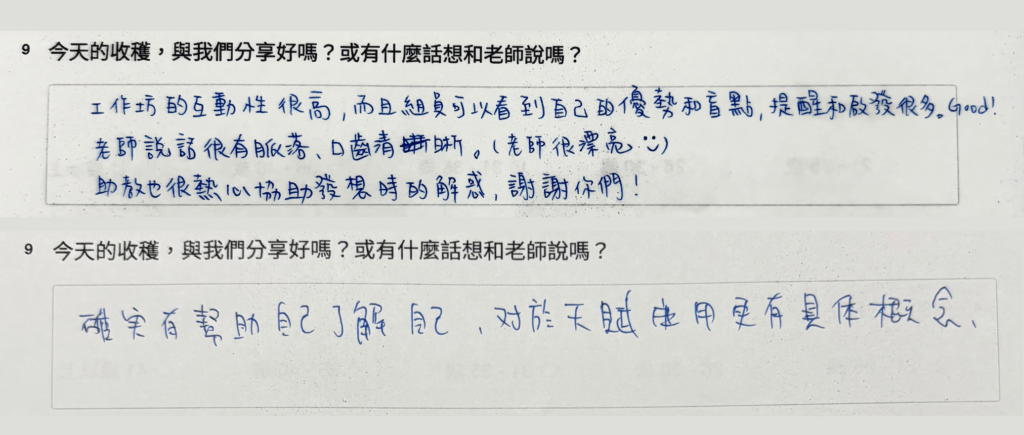 9 今天的收穫，與我們分享好嗎？或有什麼話想和老師說嗎？
工作坊的互動性很高，而且組員可以看到自己的優勢和盲點，提醒和啟發很多。Good!
老師說話很有脈落、口齒清晰。(老師很漂亮 :))
助教也很熱心協助發想時的解惑，謝謝你們！
9 今天的收穫，與我們分享好嗎？或有什麼話想和老師說嗎？
確实有幫助自己了解自己、对於天賦应用更有具体概念、